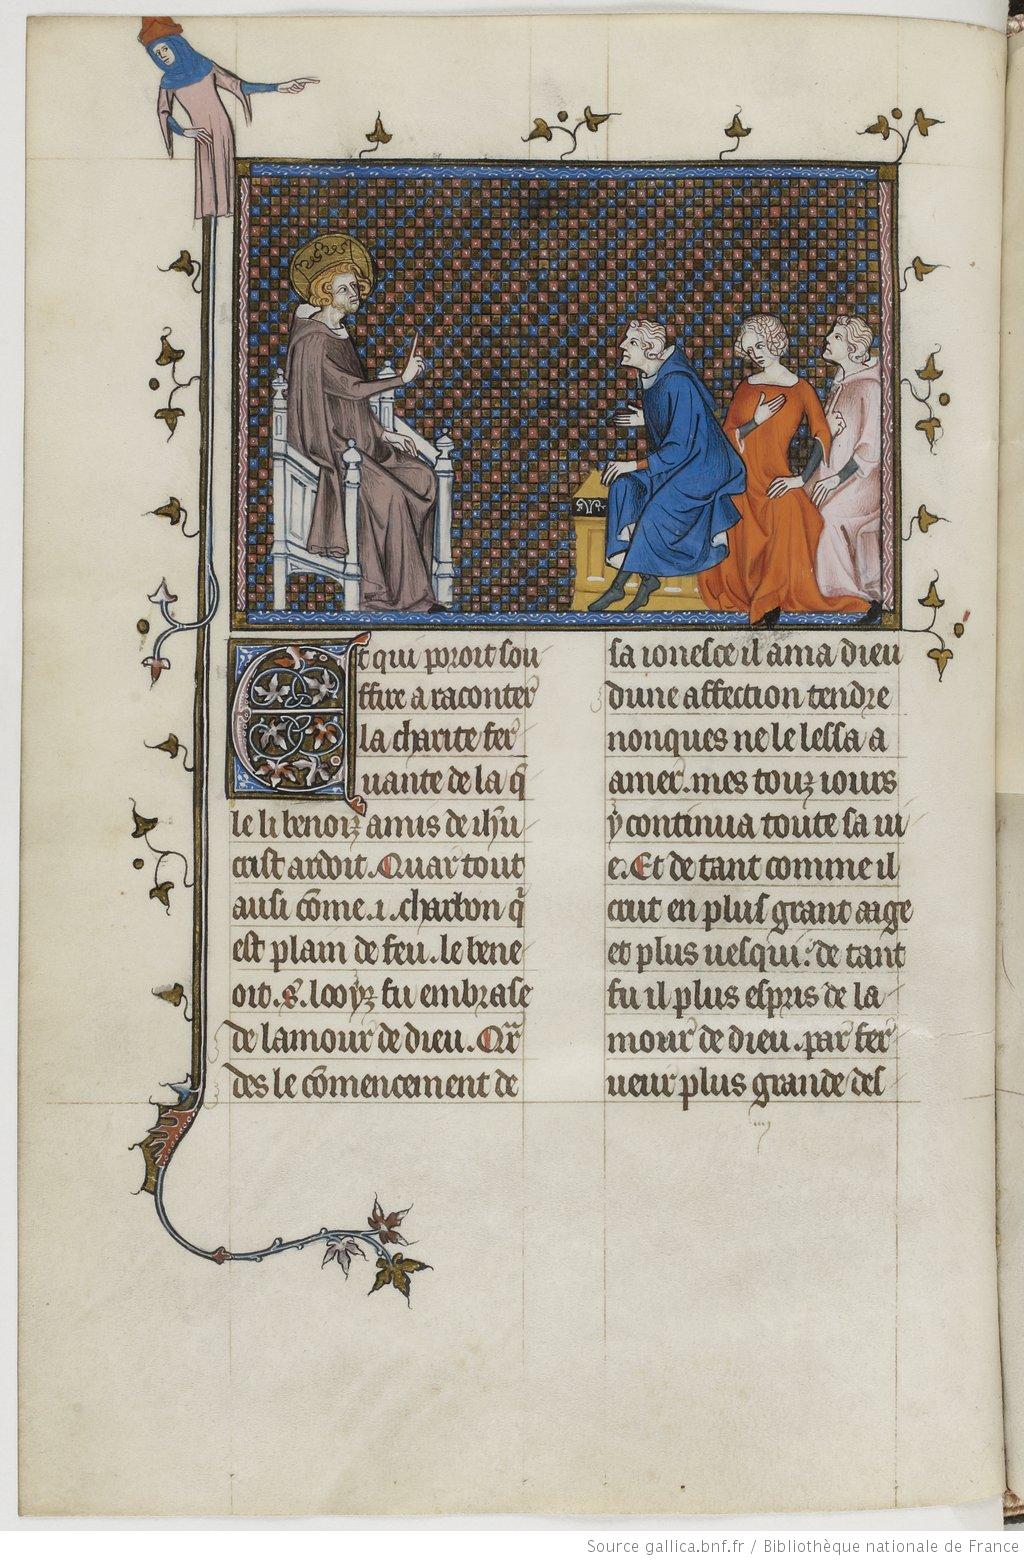 Et qui poroit sou
ffire a raconter
la charite fer
uante de la q̃
le li benoiz amis de ih̃u
crist ardoit. Quar tout
ausi cõme .i. charbon q̃
est plain de feu. le bene
oit .S. looyz fu embrase
de lamour de dieu. Qr̃
des le cõmencement de
sa ionesce il ama dieu
dune affection tendre
nonques ne le lessa a
amer. mes touz iours
y continua toute sa ui
e. Et de tant comme il
crut en plus grant aage
et plus uesqui: de tant
fu il plus espris de la
mour de dieu. par fer
ueur plus grande des
Source gallica.bnf.fr / Bibliothèque nationale de France